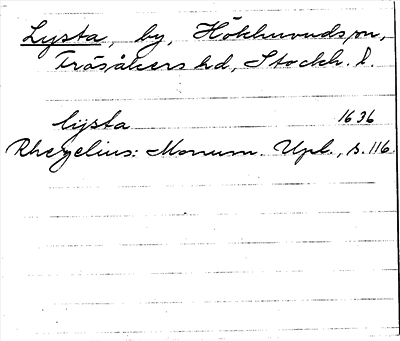 Lysta, by, Hökhuvuds sn,
Frösåkers hd, Stockh. l.
lijsta 1636
Rhezelius: Monum. Upl., s. 116.